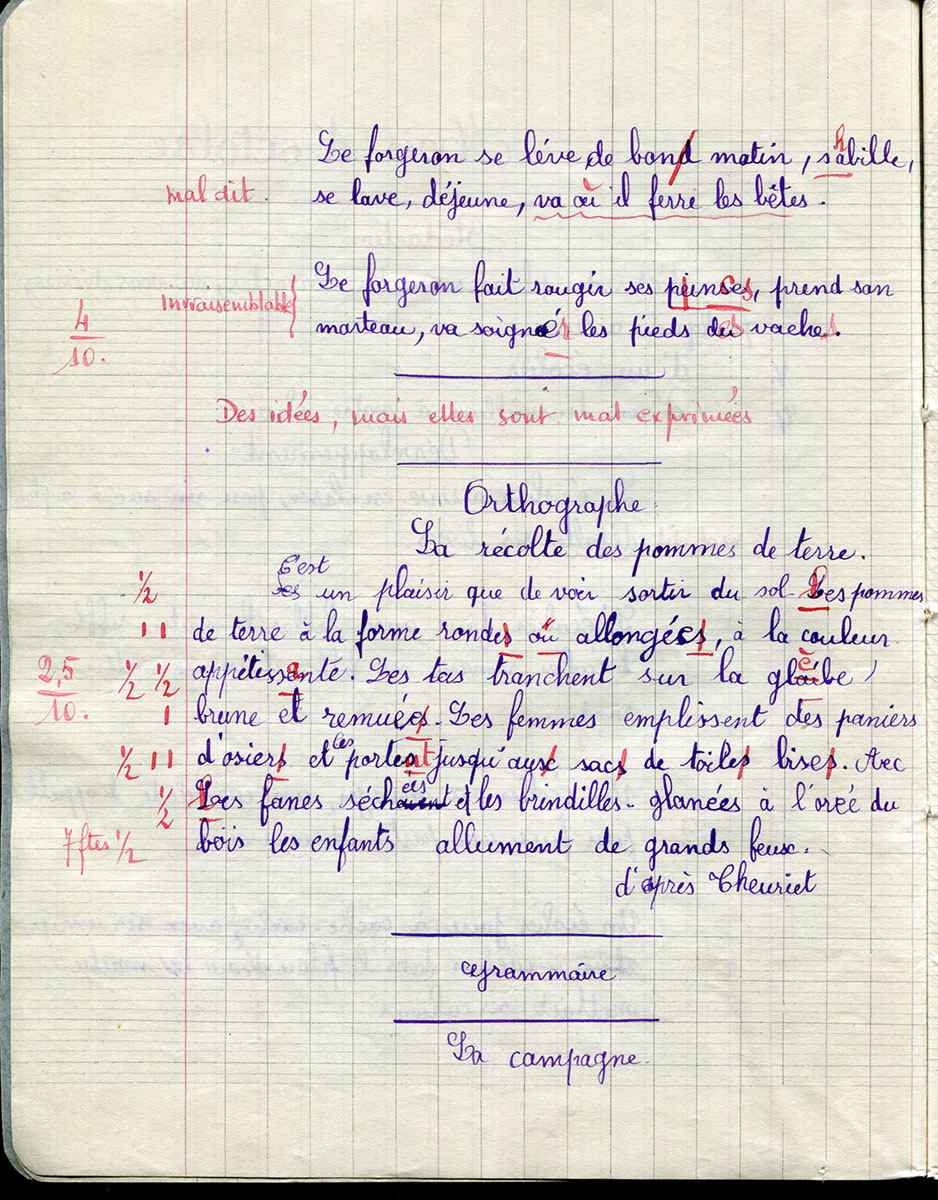 Le forgeron se léve de bond matin, s'habille,
mal dit. se lave, déjeune, va où il ferre les bêtes.
Le forgeron fait rougir ses pinces, prend son
invraisemblable
4/10. marteau, va soigner les pieds des vaches.
Des idées, mais elles sont mal exprimées
Orthographe
La récolte des pommes de terre.
C'est
1/2 un plaisir que de voir sortir du sol les pommes
11 de terre à la forme rondes ou allongées, à la couleur
2,5/10. 1/2 1/2 appétissante. Les tas tranchent sur la glèbe
1 brune et remuées. Les femmes emplissent des paniers
les
1/2 11 d'osiers et portent jusqu'aux sacs de toiles bises. Avec
1/2 les fanes séchées et les brindilles glanées à l'orée du
7 ftes 1/2 bois les enfants allument de grands feux.
d'après Theuriet
Grammaire
La campagne